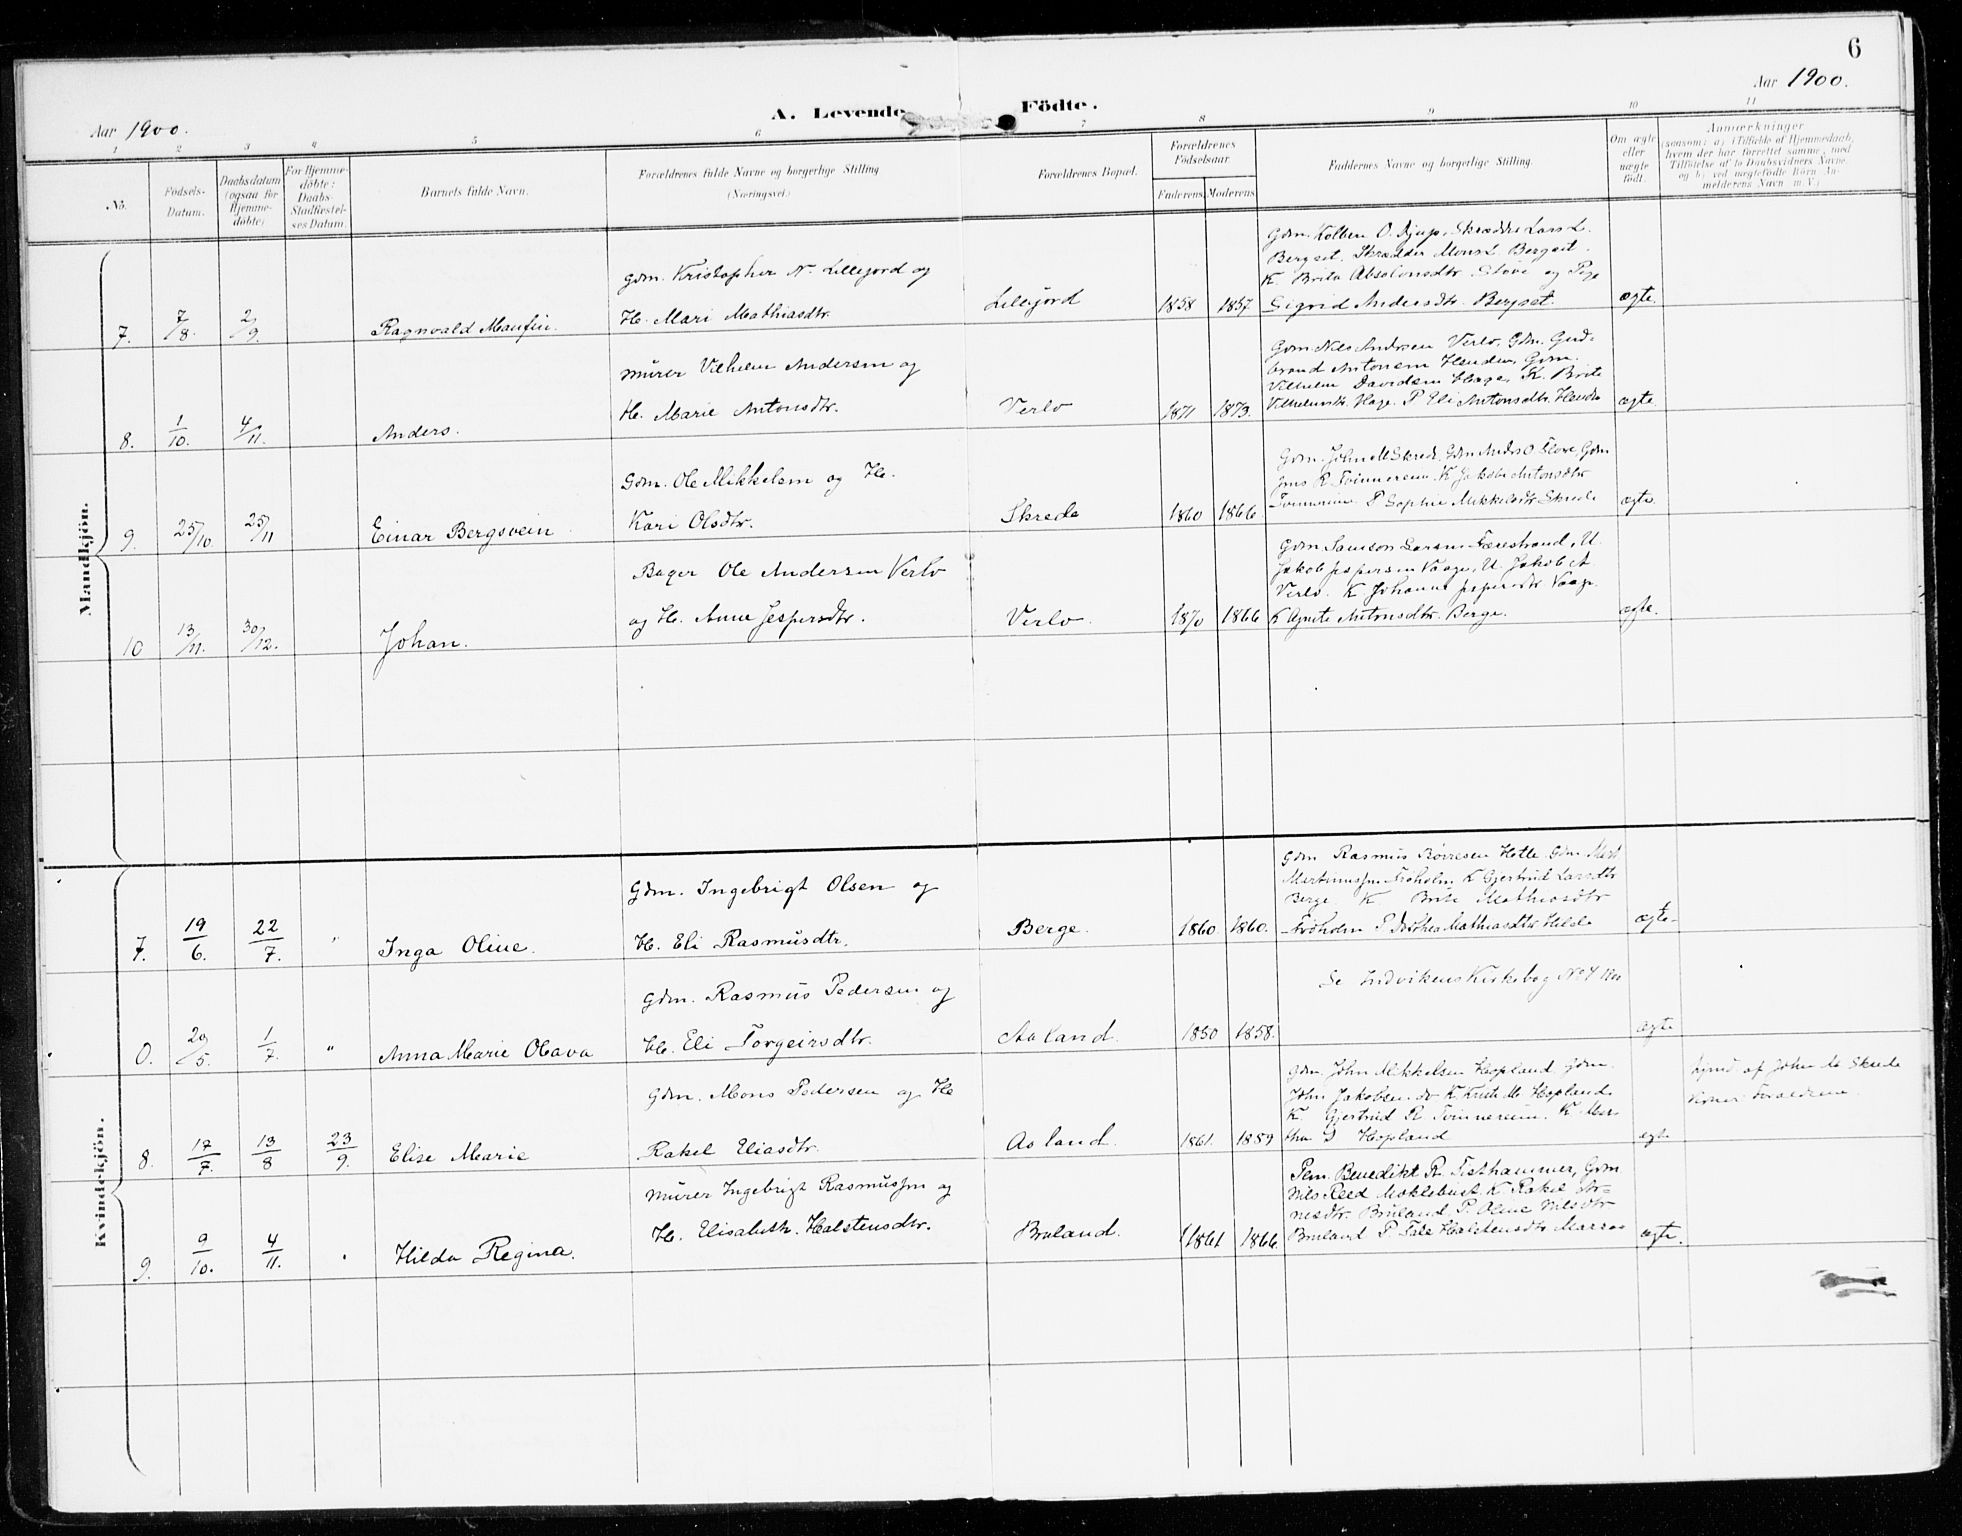 6
Aar 1900.
Aar 1900.
A. Levende Födte.
1 2 3 4 5 6 7 8 9 10 11
No.
Födsels-
Datum.
Daabsdatum
(ogsaa for
Hjemme-
döbte)
For Hjemme-
döbte:
Daabs-
Stadfæstel-
ses Datum.
Barnets fulde Navn.
Forældrenes fulde Navne og borgerlige Stilling
(Næringsvei.)
Forældrenes Bopæl.
Forældrenes
Födselsaar.
Faderens Moderens
Faddernes Navne og borgerlige Stilling.
Om ægte
eller
uægte
födt.
Anmærkninger
(saasom: a) i Tilfælde af Hjemmedaab,
hvem der har forrettet samme, med
Tilföielse af to Daabsvidners Navne
og b) ved uægtefödte Börn An-
melderens Navn m. V.)
Mandkjön.
7. 7/8 2/9 Ragnvald
Gdm. Kristopher N. Lillejord og
H. Mari Mathiasdtr.
Lillejord 1858 1857
Gdm. Kolbein O. Djup, Skrædder Lars L.
Bergset. Skrædder Mons L. Bergset.
K. Brita Absalonsdtr. og Pige
Sigrid Andersdtr. Bergset. ægte.
8. 1/10. 4/11. Anders.
Murer Vilhelm Andersen og
H. Marie Antonsdtr.
Verlo 1871 1873.
Gdm. Nils Andersen Verlo, Gdm. Gud-
brand Antonsen Henden, Gdm.
Vilhelm Davidsen Hage, K. Brite
Hage. P Eli Antonsdtr. ægte
9. 25/10 25/11 Einar Bergsvein
Gdm. Ole Mikkelsen og H.
Kari Olsdtr.
Skrede 1860 1866.
Gdm. John M Skrede, Gdm Anders O Gdm
Jens R Tvinnereim K Jakobe Antonsdtr
P Sophie Mikkelsdtr Skrede ægte
10 13/11. 30/12. Johan.
Bager Ole Andersen Verlo
og H. Anne Jespersdtr.
Verlo. 1870 1866
Gdm Samson Larsen Færestrand, U.
Jakob Jespersen Vaage, U. Jakob A
Verlo. K Johanne Jespersdtr Vaage
K Agnete Antonsdtr. Berge. ægte.
Kvindekjön.
7. 19/6. 22/7. " Inga Oline.
Gdm. Ingebrigt Olsen og
H. Eli Rasmusdtr.
Berge. 1860 1860.
Gdm Rasmus Börresen Hetle Gdm
Martinussen Froholm K Gjertrud Larsdtr
Berge K Brite Mathiasdtr
Froholm P Dorthea Mathiasdtr ægte-
0. 20/5. 1/7. " Anna Marie Olava
Gdm. Rasmus Pedersen og
H. Eli Torgeirsdtr.
Aaland. 1850 1858.
Se Indvikens Kirkebog No 4 1900
ægte
8. 17/7. 13/8 23/9. Elise Marie
Gdm. Mons Pedersen og H
Rakel Eliasdtr.
Aaland. 1861. 1859
Gdm. John Mikkelsen Hopland Gdm.
John Jakobsen do K Kristi M Hopland
K Gjertrud R Tvinnereim. K Mar-
tha J Hopland ægte
af John M Skrede
Forældrene
9. 9/10. 4/11. " Hilda Regina.
Murer Ingebrigt Rasmussen og
H. Elisabeth Halstensdtr.
Bruland. 1861 1866.
Pem. Benedikt R. Tisthammer, Gdm
Nils Reed Myklebust K Rakel
Bruland P Oline Nilsdtr
Bruland P Halstensdtr ægte.